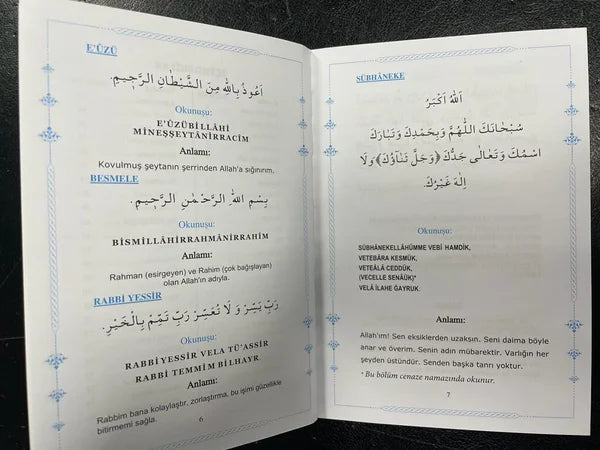 E'ÛZÜ
اَعُوذُ بِاللّٰهِ مِنَ الشَّيْطَانِ الرَّجِيمِ.
Okunuşu:
E'ÛZÜBİLLÂHİ
MİNEŞŞEYTÂNİRRACÎM
Anlamı:
Kovulmuş şeytanın şerrinden Allah'a sığınırım.
BESMELE
بِسْمِ اللّٰهِ الرَّحْمٰنِ الرَّجِيمِ.
Okunuşu:
BİSMİLLÂHİRRAHMÂNİRRAHÎM
Anlamı:
Rahman (esirgeyen) ve Rahim (çok bağışlayan)
olan Allah'ın adıyla.
RABBİ YESSİR
رَبِّ يَسِّرْ وَ لَا تُعَسِّرْ رَبِّ تَمِّمْ بِالْخَيْرِ.
Okunuşu:
RABBİYESSİR VELA TÜ'ASSİR
RABBİ TEMMİM BİLHAYR
Anlamı:
Rabbim bana kolaylaştır, zorlaştırma, bu işimi güzellikle
bitirmemi sağla.
6
SÜBHÂNEKE
اَللّٰهُ اَكْبَرُ
سُبْحَانَكَ اللّٰهُمَّ وَبِحَمْدِكَ وَتَبَارَكَ
اسْمُكَ وَتَعَالٰى جَدُّكَ ﴿وَجَلَّ ثَنَاؤُكَ﴾ وَلَا
اِلٰهَ غَيْرُكَ.
Okunuşu:
SÜBHÂNEKELLÂHÜMME VEBİ HAMDİK,
VETEBÂRA KESMÜK,
VETEÂLÂ CEDDÜK,
(VECELLE SENÂÜK)*
VELÂ İLAHE ĞAYRUK.
Anlamı:
Allah'ım! Sen eksiklerden uzaksın. Seni daima böyle
anar ve överim. Senin adın mübarektir. Varlığın her
şeyden üstündür. Senden başka tanrı yoktur.
* Bu bölüm cenaze namazında okunur.
7